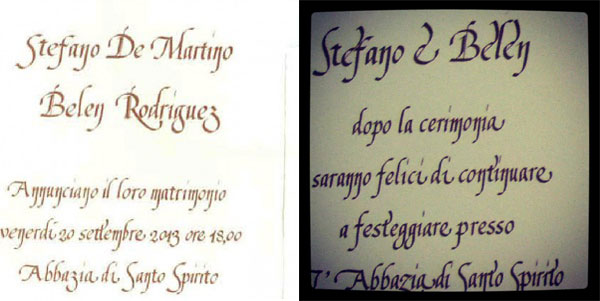 Stefano De Martino
Belen Rodriguez
Annunciano il loro matrimonio
venerdì 20 settembre 2013 ore 18,00
Abbazia di Santo Spirito
Stefano e Belen
dopo la cerimonia
saranno felici di continuare
a festeggiare presso
l'Abbazia di Santo Spirito